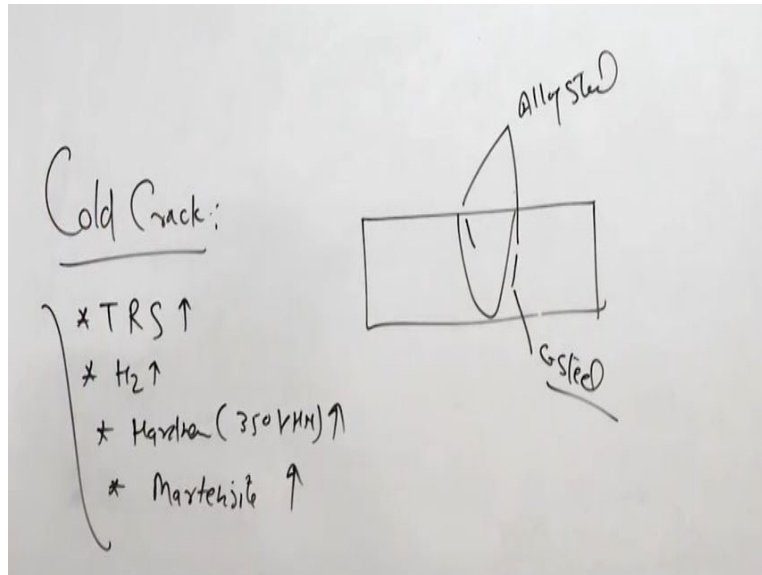 Cold Crack:
* TRS ↑
* H2 ↑
* Hardnes (350 VHN) ↑
* Martensite ↑
Alloy Steel
C Steel